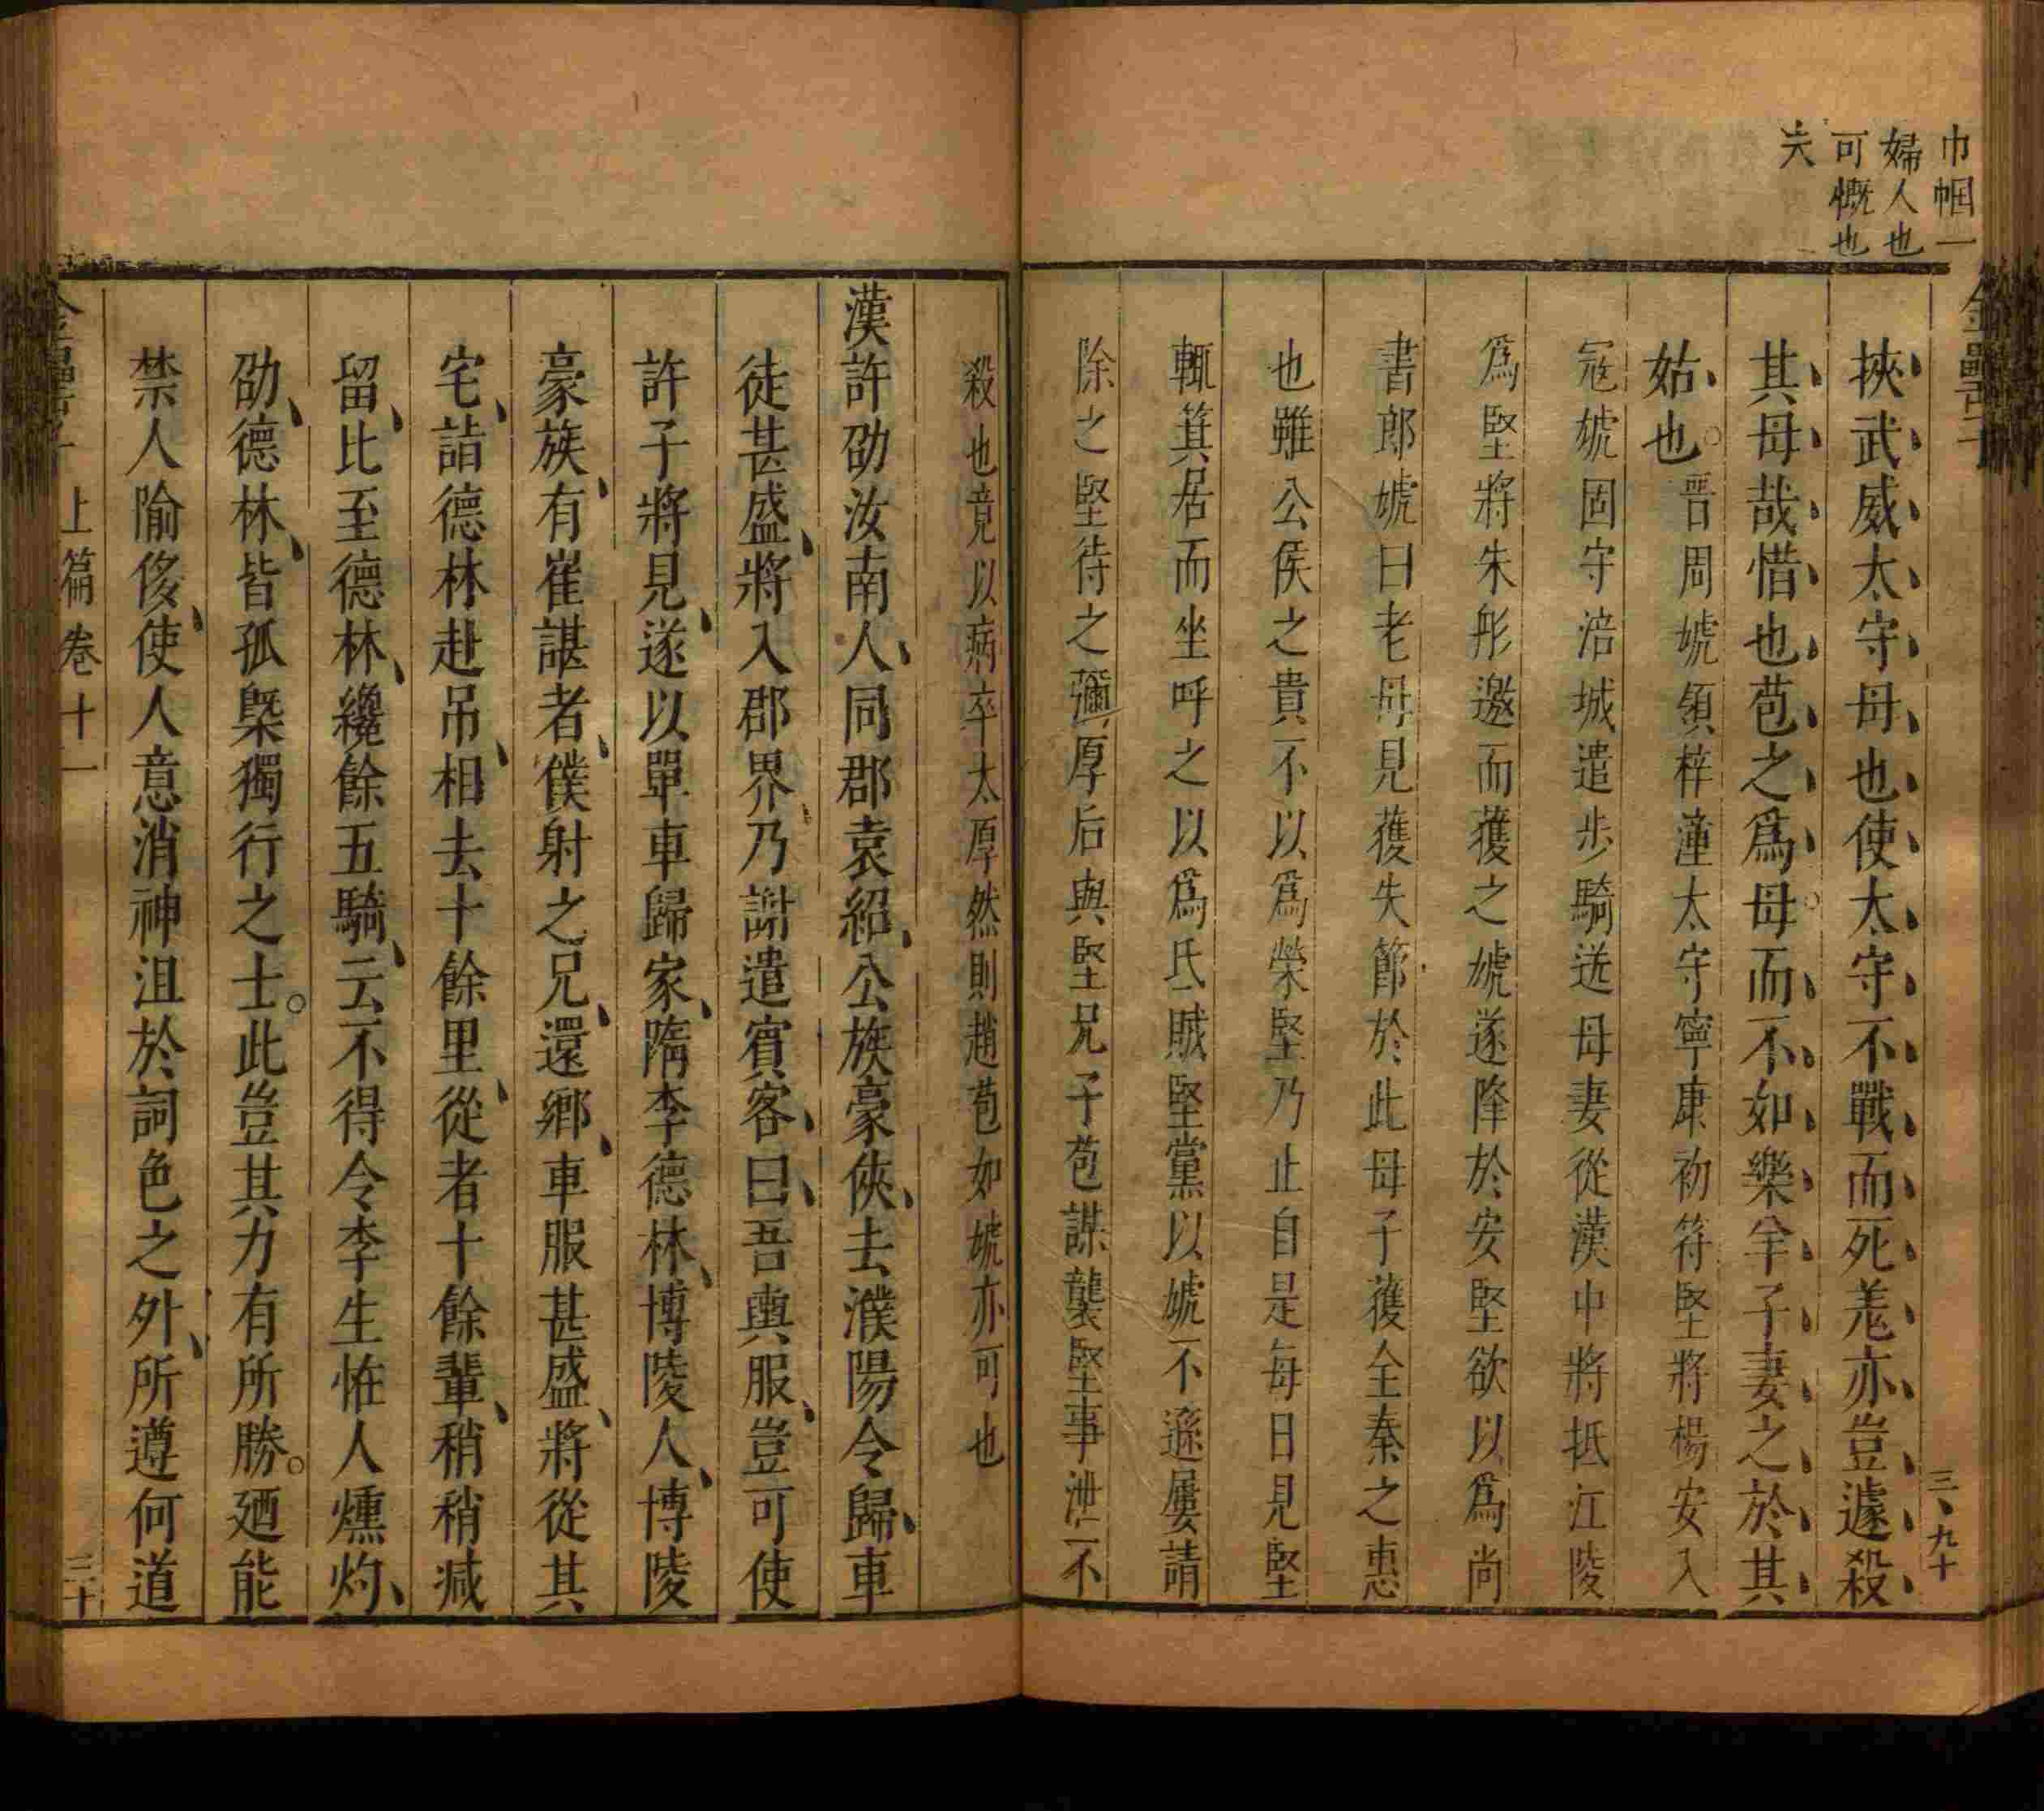 巾幗一
婦人也
可慨也
夫
挾武威太守母也使太守不戰而死羌亦豈遽殺
其母哉惜也苞之爲母而不如樂羊子妻之於其
姑也晉周虓領梓潼太守寧康初苻堅將楊安入
寇虓固守涪城遣步騎送母妻從漢中將抵江陵
爲堅將朱彤邀而獲之虓遂降於安堅欲以爲尚
書郎虓曰老母見獲失節於此母子獲全秦之惠
也雖公侯之貴不以爲榮堅乃止自是每日見堅
輒箕居而坐呼之以爲氐賊堅黨以虓不遜屢請
除之堅待之彌厚后與堅兄子苞謀襲堅事泄不
殺也竟以病卒太原然則趙苞如虓亦可也
漢許劭汝南人同郡袁紹公族豪俠去濮陽令歸車
徒甚盛將入郡界乃謝遣賓客曰吾輿服豈可使
許子將見遂以單車歸家隋李德林博陵人博陵
豪族有崔諶者僕射之兄還鄉車服甚盛將從其
宅詣德林赴吊相去十餘里從者十餘輩稍稍减
留比至德林纔餘五騎云不得令李生怪人燻灼
劭德林皆孤槩獨行之士此豈其力有所勝廼能
禁人隃侈使人意消神沮於詞色之外所遵何道
上篇卷十一
三十